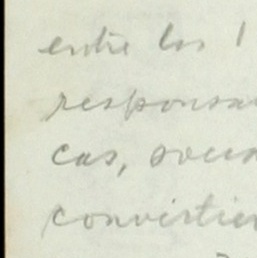 entre los 1
responsa
cas, socia
convirtien